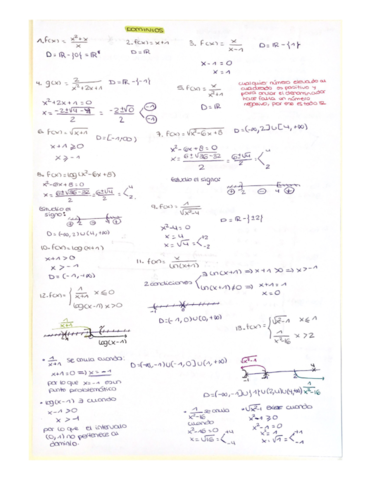 DOMINIOS
1. f(x) = x²+x / x
D = ℝ - {0} = ℝ*
2. f(x) = x+1
D = ℝ
3. f(x) = x / x-1
D = ℝ - {1}
x - 1 = 0
x = 1
4. g(x) = 2 / x²+2x+1
D = ℝ - {-1}
x²+2x+1 = 0
D = ℝ
cualquier número elevado al
cuadrado es positivo y
para anular el denominador
hace falta un número
negativo, por eso es todo ℝ
6. f(x) = √x+1
x+1 ≥ 0
x ≥ -1
7. f(x) = √x²-6x+8
D = (-∞, 2] ∪ [4, +∞)
x²-6x+8 = 0
x = 6±√36-32 / 2 = 6±√4 / 2
Estudio el signo:
8. f(x) = log(x²-6x+8)
x²-6x+8 = 0
x = 6±√36-32 / 2 = 6±√4 / 2
Estudio el
signo:
D = (-∞, 2) ∪ (4, +∞)
9. f(x) = 1 / √x²-4
D = ℝ - {±2}
x²-4 = 0
x² = 4
x = √4 = +2 -2
10. f(x) = log(x+1)
x+1 > 0
x > -1
D = (-1, +∞)
11. f(x) = x / ln(x+1)
2 condiciones
ln(x+1) ⇒ x+1 > 0 ⇒ x > -1
ln(x+1) ≠ 0 ⇒ x+1 = 1
x = 0
D = (-1, 0) ∪ (0, +∞)
12. f(x) = { 1 / x+1 x ≤ 0
log(x-1) x > 0
13. f(x) = { √x²-1 x ≤ 1
1 / x²-16 x > 2
1 / x+1
log(x-1)
• 1 / x+1 se anula cuando:
x+1 = 0 ⇒ x = -1
por lo que x = -1 es un
punto problemático
• log(x-1) ∃ cuando
x-1 > 0
x > 1
por lo que el intervalo
(0, 1) no pertenece al
dominio.
D = (-∞, -1) ∪ (-1, 0] ∪ (1, +∞)
√x²-1
1 / x²-16
cuando
x²-16 = 0
x = √16 = +4 -4
x² - 1 ≥ 0
x² - 1 = 0
x² = 1
x = √1